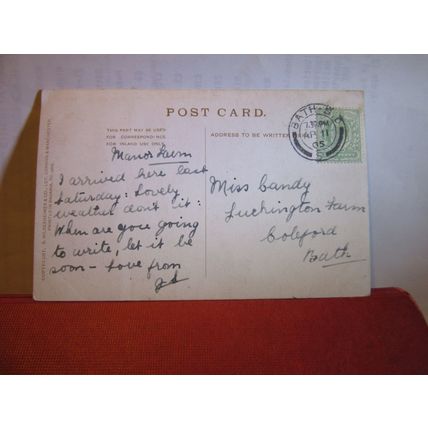 POST CARD.
THIS PART MAY BE USED
FOR CORRESPONDENCE
FOR INLAND USE ONLY.
ADDRESS TO BE WRITTEN
BATH
7.30 PM
AP 11
05
Manor Farm
I arrived here last
Saturday: Lovely
weather don't it:
When are you going
to write, let it be
soon - Love from
Miss Candy
Luckington Farm
Coleford
Bath